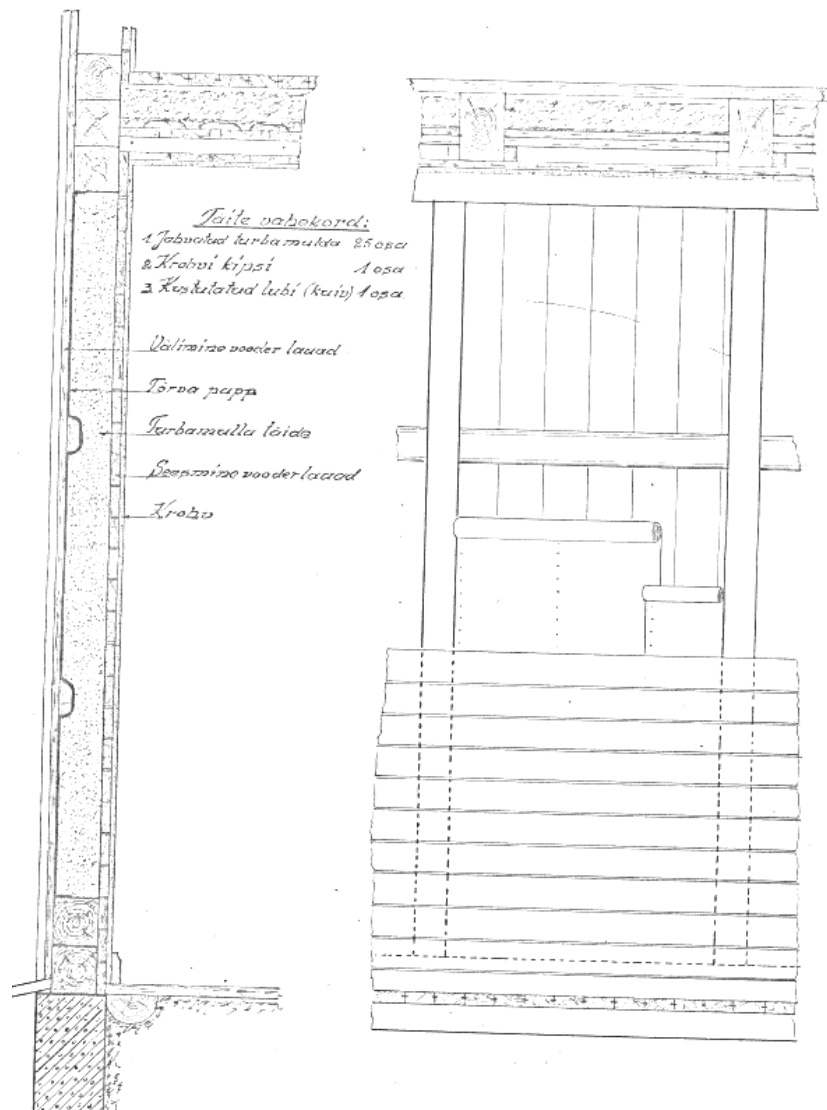 Täite vahekord:
1. Jahvatud turbamulda 25 osa
2. Krohvi kipsi 1 osa
3. Kustutatud lubi (kuiv) 1 osa
Välimine vooder lauad
Tõrva papp
Turbamulla täide
Seesmine vooder lauad
Krohv